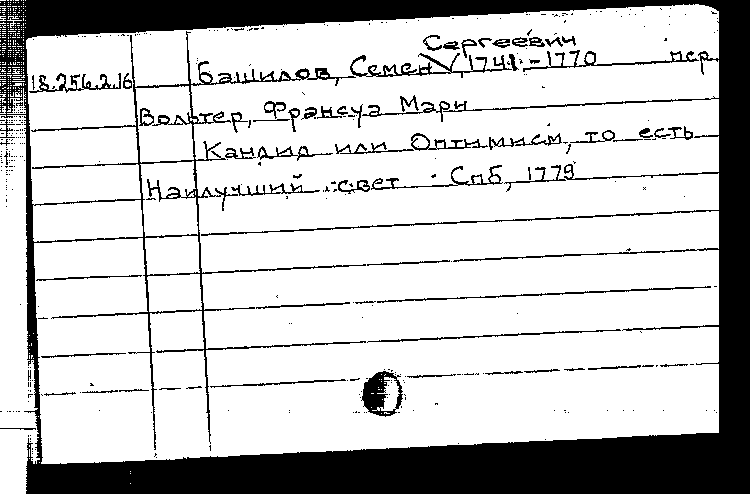 Сергеевич
18.256.2.16 Башилов, Семен V, 1741.-1770 пер.
Вольтер, Франсуа Мари
Кандид или Оптимисм, то есть
Наилучший свет. Спб, 1779